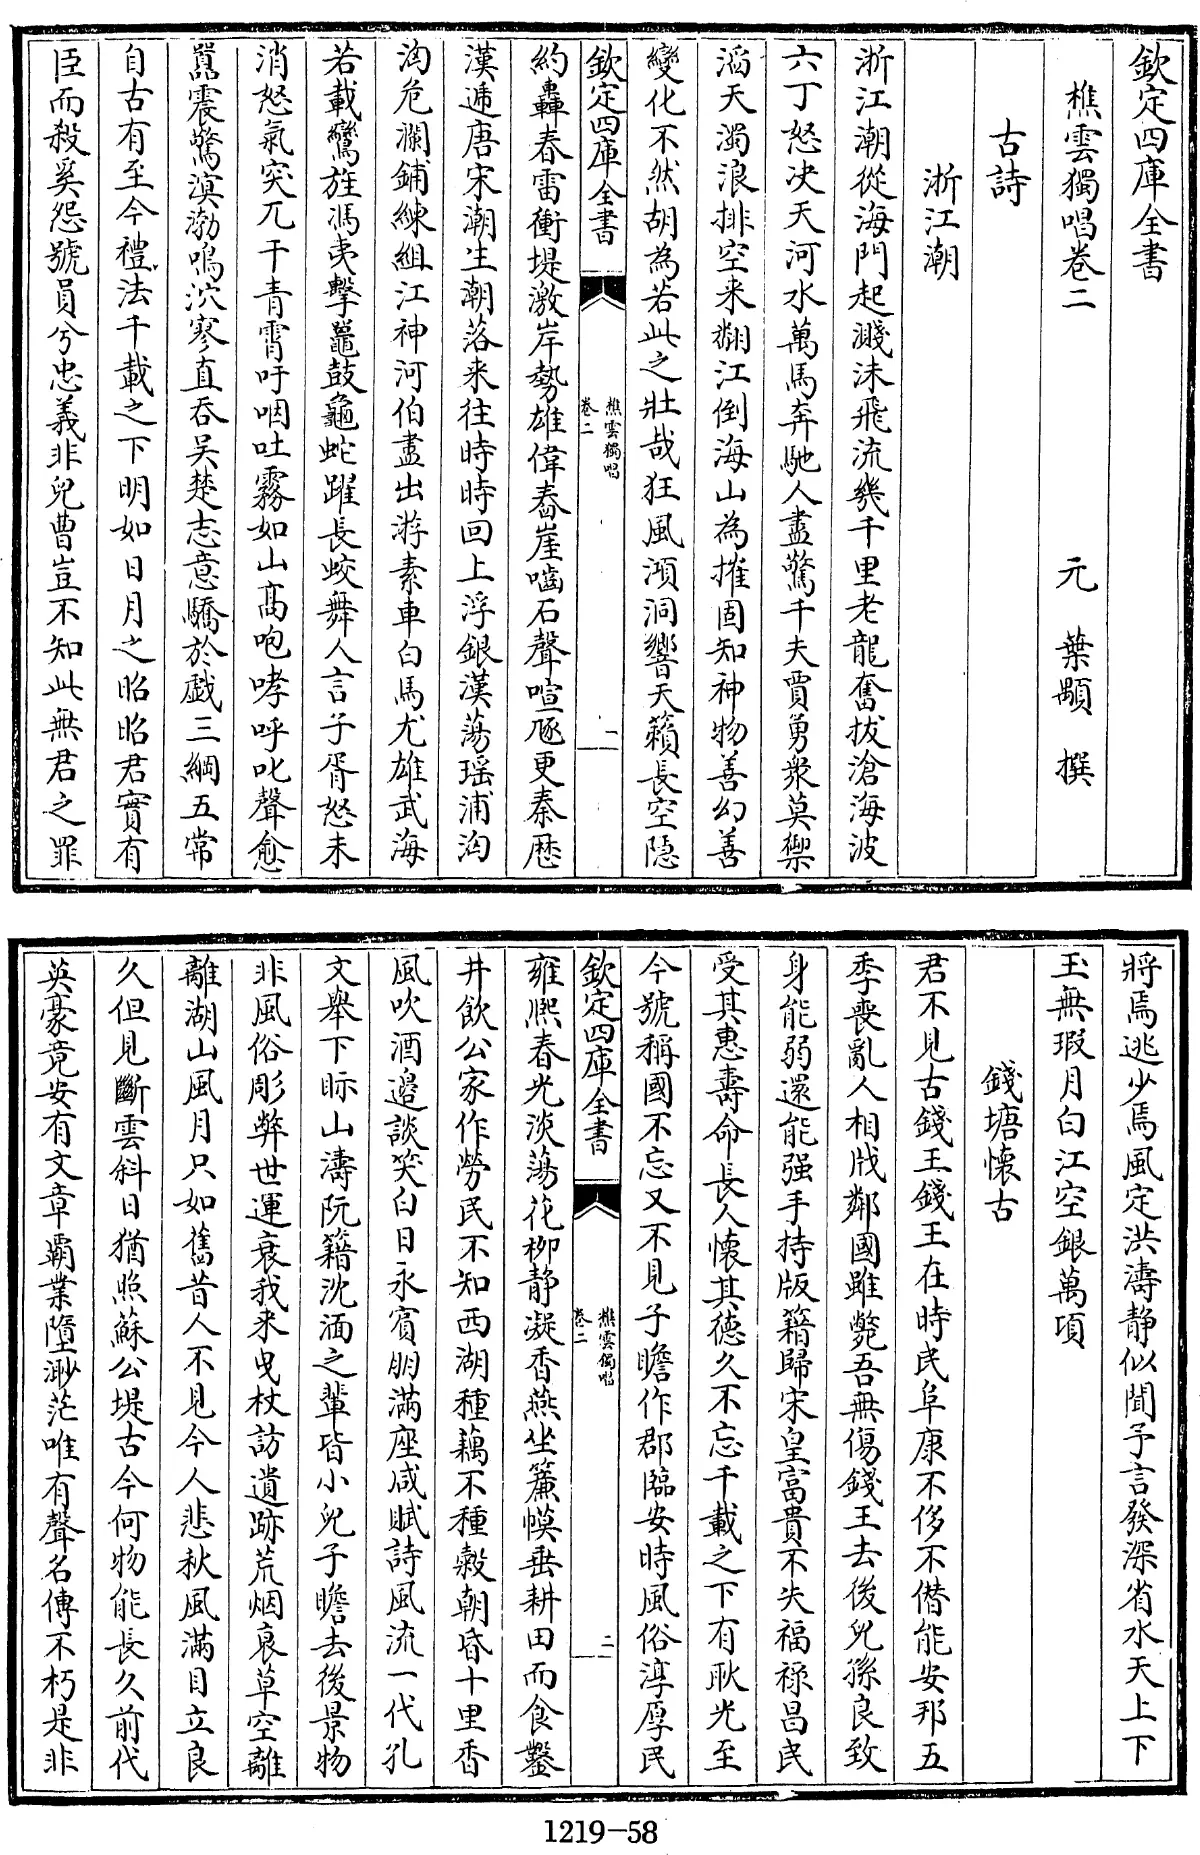 欽定四庫全書
樵雲獨唱卷二
元 葉顒 撰
古詩
浙江潮
浙江潮從海門起濺沫飛流幾千里老龍奮拔滄海波
六丁怒决天河水萬馬奔馳人盡驚千夫賈勇衆莫禦
滔天濁浪排空来翻江倒海山為摧固知神物善幻善
變化不然胡為若此之壯哉狂風澒洞響天籟長空隱
欽定四庫全書
樵雲獨唱
卷二
一
約轟春雷衝堤激岸勢雄偉舂崖嚙石聲喧豗更秦歴
漢逓唐宋潮生潮落来往時時回上浮銀漢蕩瑶浦沟
汹危瀾鋪練組江神河伯盡出游素車白馬尤雄武海
若載鸞旌馮夷擊鼉鼓龜蛇躍長蛟舞人言子胥怒未
消怒氣突兀干青霄吁咽吐霧如山髙咆哮呼叱聲愈
嚚震驚溟渤鳴泬寥直吞吴楚志意驕於戯三綱五常
自古有至今禮法千載之下明如日月之昭昭君實有
臣而殺奚怨號員兮忠義非兒曹豈不知此無君之罪
將焉逃少焉風定洪濤静似聞予言發深省水天上下
玉無瑕月白江空銀萬項
錢塘懐古
君不見古錢王錢王在時民阜康不侈不僣能安邦五
季喪亂人相戕鄰國雖斃吾無傷錢王去後兒孫良致
身能弱還能强手持版籍歸宋皇富貴不失福祿昌民
受其惠壽命長人懐其德久不忘千載之下有耿光至
今號稱國不忘又不見子瞻作郡臨安時風俗淳厚民
欽定四庫全書
樵雲獨唱
卷二
二
雍熈春光淡蕩花栁静凝香燕坐簾幙垂耕田而食鑿
井飲公家作勞民不知西湖種藕不種穀朝昏十里香
風吹酒邉談笑白日永賓朋滿座咸賦詩風流一代孔
文舉下眎山濤阮籍沈湎之輩皆小兒子瞻去後景物
非風俗彫弊世運衰我来曳杖訪遺跡荒烟衰草空離
離湖山風月只如舊昔人不見今人悲秋風滿目立良
久但見斷雲斜日猶照蘇公堤古今何物能長久前代
英豪竟安有文章覇業墮渺茫唯有聲名傳不朽是非
1219-58